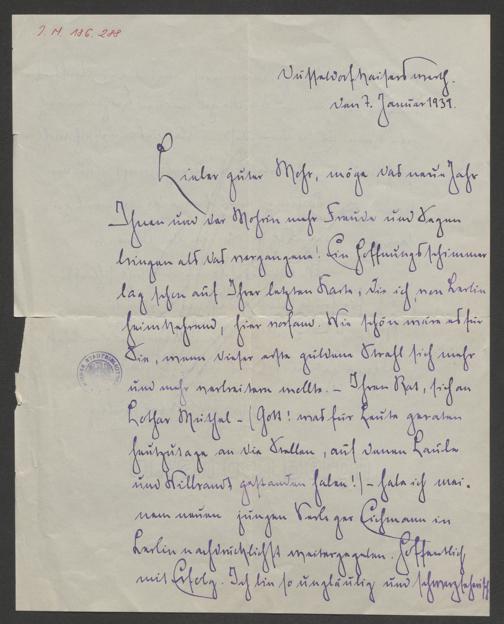 J. N. 196.288
Düsseldorf Kaiserswerth.
den 7. Januar 1931.
Lieber guter Mohr, möge das neue Jahr
Ihnen und der Mohrin mehr Freude und Segen
bringen als das vergangene! Ein Hoffnungsschimmer
lag schon auf Ihrer letzten Karte, die ich, von Berlin
heimkehrend, hier vorfand. Wie schön wäre es für
Sie, wenn dieser erste güldene Strahl sich mehr
und mehr verbreitern wollte. – Ihren Rat, sich an
Lothar Müthel – (Gott! was für Leute geraten
heutzutage an die Stellen, auf denen Laube
und Wilbrandt gestanden haben!) – habe ich mei-
nem neuen jungen Verleger Eichmann in
Berlin nachdrücklichst weitergegeben. Hoffentlich
mit Erfolg. Ich bin so ungläubig und schwarzseherisch